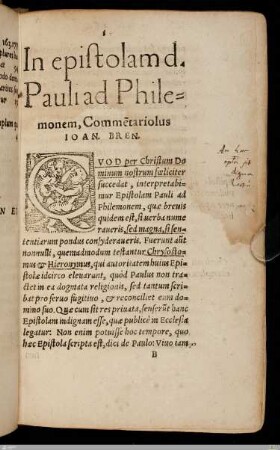 In epistolam d.
Pauli ad Phile-
monem, Commẽtariolus
IOAN. BREN.
QVOD per Christum Do
minum nostrum fœliciter
succedat, interpretabi-
mur Epistolam Pauli ad
Philemonem, quæ breuis
quidem est, si uerba nume
raueris, sed magna, si sen-
tentiarum pondus consyderaueris. Fuerunt aũt
nonnulli, quemadmodum testantur Chrysosto-
mus & Hieronymus, qui autoritatem huius Epi-
stolæ idcirco eleuarunt, quod Paulus non tract
et in ea dogmata religionis, sed tantum scri-
bat pro seruo fugitiuo, & reconciliet eum do-
mino suo. Quæ cum sit res priuata, senserũt hanc
Epistolam indignam esse, quæ publicè in Ecclesia
legatur: Non enim potuisse hoc tempore, quo
hæc Epistola scripta est, dici de Paulo: Viuo iam,
B